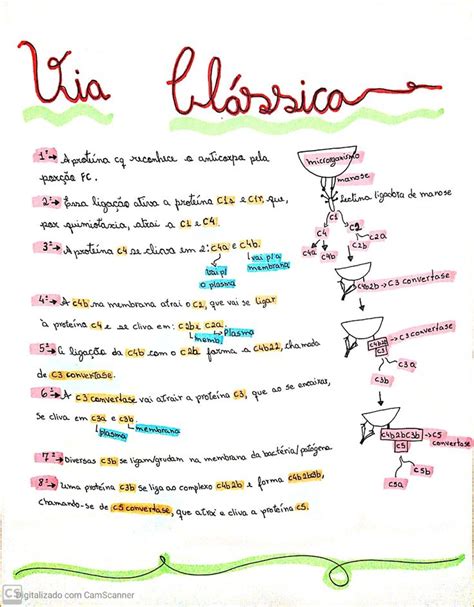 Via Clássica
1º → A proteína Cq reconhece o anticorpo pela
porção FC.
2º → Essa ligação ativa a proteína C1s e C1r, que,
por quimiotaxia, atrai a C1 e C4.
3º → A proteína C4 se cliva em 2: C4a e C4b.
vai p/
o plasma
vai p/ a
membrana
4º → A C4b na membrana atrai o C2, que vai se ligar
à proteína C4 e se cliva em: C2b e C2a.
memb.
Plasma
5º → A ligação da C4b com o C2b forma a C4b22, chamada
de C3 convertase.
6º → A C3 convertase vai atrair a proteína C3, que ao se encaixar,
se cliva em C3a e C3b.
plasma
membrana
7º → Diversas C3b se ligam/grudam na membrana da bactéria/patógeno.
8º → Uma proteína C3b se liga ao complexo C4b2b e forma C4b2b3b,
chamando-se de C5 convertase, que atrai e cliva a proteína C5.
microrganismo
manose
lectina ligadora de manose
C1
C4
C2
C4a
C4b
C2b
C2a
C4b2b → C3 convertase
C4b2b → C3 convertase
C3
C3a
C3b
C4b2bC3b → C5
convertase
C5
C5b
C5a
CS Digitalizado com CamScanner